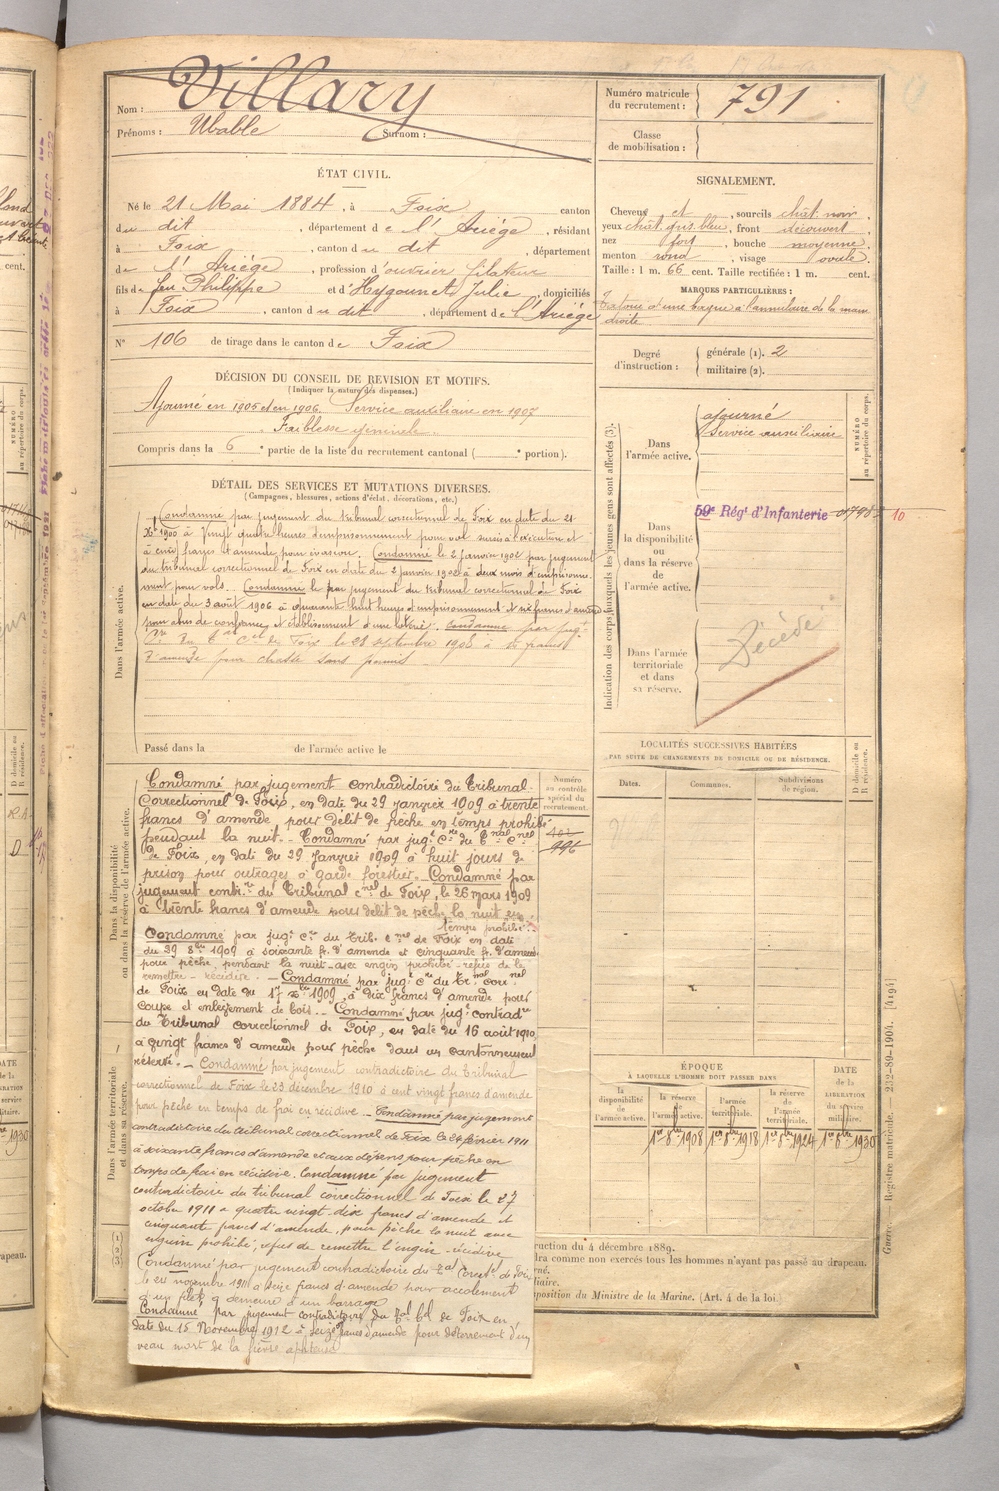 Nom : Villary
Prénoms : Ubable Surnom :
Numéro matricule du recrutement : 791
Classe de mobilisation :
ÉTAT CIVIL.
Né le 21 Mai 1884, à Foix canton
du dit, département de l'Ariège, résidant
à Foix, canton du dit, département
de l'Ariège, profession d'ouvrier filateur
fils de feu Philippe et d'Hygounet Julie, domiciliés
à Foix, canton du dit, département de l'Ariège
N° 106 de tirage dans le canton de Foix
SIGNALEMENT.
Cheveux et, sourcils chât. noir,
yeux chât. gris bleu, front découvert,
nez fort, bouche moyenne,
menton rond, visage ovale.
Taille : 1 m. 66 cent. Taille rectifiée : 1 m. cent.
MARQUES PARTICULIÈRES :
Tatoué d'une bague à l'annulaire de la main
droite
Degré d'instruction : générale (1). 2
militaire (2).
DÉCISION DU CONSEIL DE REVISION ET MOTIFS.
(Indiquer la nature des dispenses.)
Ajourné en 1905 et en 1906. Service auxiliaire en 1907
Faiblesse générale.
Compris dans la 6e partie de la liste du recrutement cantonal ( e portion).
DÉTAIL DES SERVICES ET MUTATIONS DIVERSES.
(Campagnes, blessures, actions d'éclat, décorations, etc.)
Dans l'armée active.
Condamné par jugement du tribunal correctionnel de Foix en date du 21
Xbre 1900 à Vingt quatre heures d'emprisonnement pour vol sursis à l'exécution et
à cinq francs d'amende pour évasion. Condamné le 2 janvier 1902 par jugement
du tribunal correctionnel de Foix en date du 2 janvier 1902 à deux mois d'emprisonne-
ment pour vols. Condamné le par jugement du tribunal correctionnel de Foix
en date du 3 août 1906 à quarante huit heures d'emprisonnement et six francs d'amende
pour abus de confiance et établissement d'une loterie. Condamné par jugt
Cre du Tal Cel de Foix le 28 septembre 1908 à francs
d'amende pour chasse sans permis.
Passé dans la de l'armée active le
Dans la disponibilité
ou dans la réserve de l'armée active.
Condamné par jugement contradictoire du Tribunal
Correctionnel de Foix, en date du 29 janvier 1909 à trente
francs d'amende pour délit de pêche en temps prohibé
pendant la nuit.- Condamné par jugt Cre du Tnal Cnel
de Foix, en date du 29 janvier 1909 à huit jours de
prison pour outrages à garde forestier.- Condamné par
jugement contre du Tribunal cnel de Foix, le 26 mars 1909
à trente francs d'amende pour délit de pêche la nuit en
temps prohibé.
Condamné par jugt cre du Trib. cnel de Foix en date
du 29 8bre 1909 à soixante fr. d'amende et cinquante fr. d'amende
pour pêche, pendant la nuit avec engin prohibé - refus de le
remettre - récidive. - Condamné par jugt cre du Trnal cornel
de Foix en date du 17 Xbre 1909, à dix francs d'amende pour
coupe et enlèvement de bois.- Condamné par jugt contradre
du Tribunal correctionnel de Foix, en date du 16 août 1910,
à vingt francs d'amende pour pêche dans un cantonnement
réservé. - Condamné par jugement contradictoire du Tribunal
correctionnel de Foix le 23 décembre 1910 à cent vingt francs d'amende
pour pêche en temps de frai en récidive. - Condamné par jugement
contradictoire du tribunal correctionnel de Foix le 24 février 1911
à soixante francs d'amende et aux dépens pour pêche en
temps de frai en récidive. Condamné par jugement
contradictoire du tribunal correctionnel de Foix le 27
octobre 1911 à quatre vingt dix francs d'amende et
cinquante francs d'amende, pour pêche la nuit avec
engin prohibé, refus de remettre l'engin - récidive
Condamné par jugement contradictoire du Tal Correcel de Foix
le 24 novembre 1911 à seize francs d'amende pour accolement
d'un filet à demeure à un barrage
Condamné par jugement contradictoire du Tal Cel de Foix en
date du 15 Novembre 1912 à seize francs d'amende pour déterrement d'un
veau mort de la fièvre aphteuse
Dans l'armée territoriale
et dans sa réserve.
Numéro au contrôle spécial du recrutement.
996
Indication des corps auxquels les jeunes gens sont affectés (3).
NUMÉRO au répertoire du corps.
Dans l'armée active.
ajourné
Service auxiliaire
Dans la disponibilité ou dans la réserve de l'armée active.
59e Régt d'Infanterie 10
Dans l'armée territoriale et dans sa réserve.
Décédé
LOCALITÉS SUCCESSIVES HABITÉES
PAR SUITE DE CHANGEMENTS DE DOMICILE OU DE RÉSIDENCE.
Dates. Communes. Subdivisions de région. D domicile ou R résidence.
ÉPOQUE
À LAQUELLE L'HOMME DOIT PASSER DANS
la disponibilité de l'armée active. la réserve de l'armée active. l'armée territoriale. la réserve de l'armée territoriale. DATE de la LIBÉRATION du service militaire.
1er 8bre 1908 1er 8bre 1918 1er 8bre 1924 1er 8bre 1930
ruction du 4 décembre 1889.
dra comme non exercés tous les hommes n'ayant pas passé au drapeau.
rné.
liaire.
sposition du Ministre de la Marine. (Art. 4 de la loi
Guerre. — Registre matricule. — 232-89-1904. [4194]